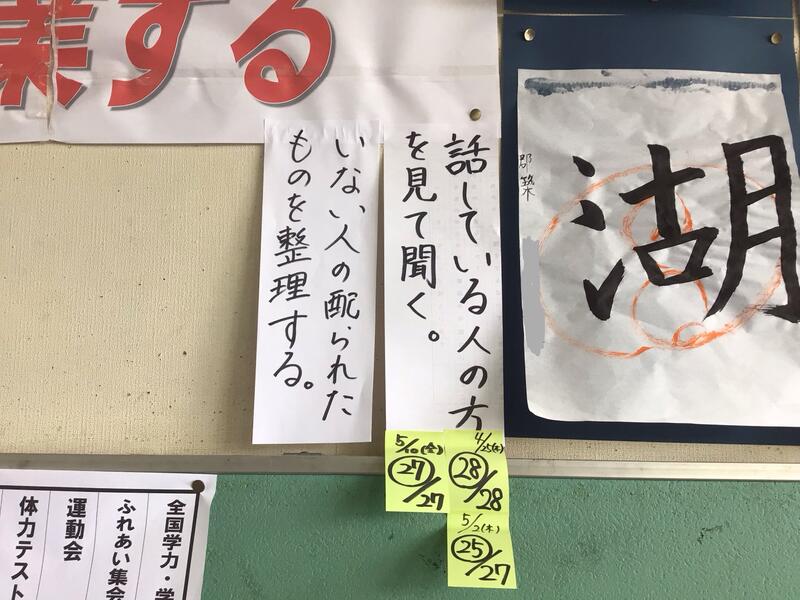 業する
湖
話している人の方
を見て聞く。
いない人の配られた
ものを整理する。
4/25(木)
28/28
5/2(木)
25/27
5/10(金)
27/27
全国学力・学
ふれあい集会
運動会
体力テスト